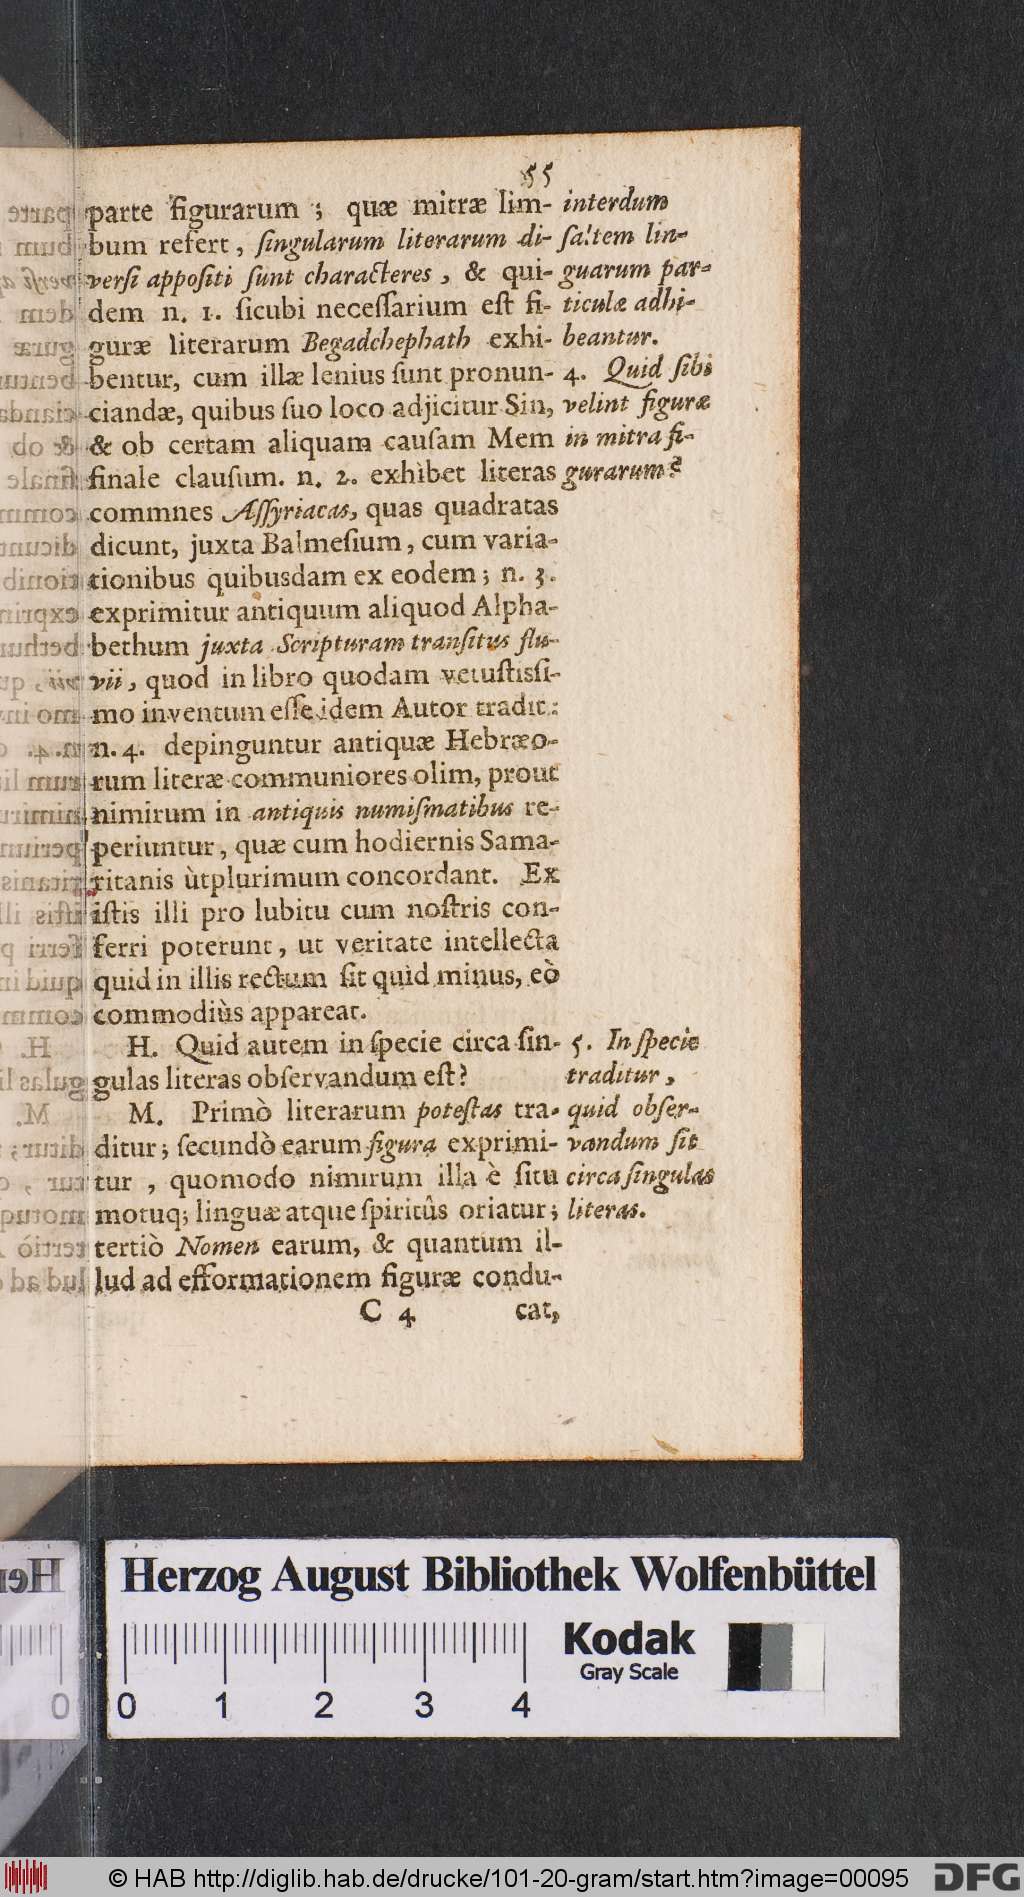 55
parte figurarum ; quæ mitræ lim-
bum refert, ſingularum literarum di-
verſi appoſiti ſunt characteres, & qui-
dem n. 1. ſicubi neceſſarium eſt fi-
guræ literarum Begadchephath exhi-
bentur, cum illæ lenius ſunt pronun-
ciandæ, quibus ſuo loco adjicitur Sin,
& ob certam aliquam cauſam Mem
finale clauſum. n. 2. exhibet literas
commnes Aſſyriacas, quas quadratas
dicunt, juxta Balmeſium, cum varia-
tionibus quibusdam ex eodem; n. 3.
exprimitur antiquum aliquod Alpha-
bethum juxta Scripturam tranſitus flu-
vii, quod in libro quodam vetuſtisſi-
mo inventum eſſe idem Autor tradit:
n. 4. depinguntur antiquæ Hebræo-
rum literæ communiores olim, prout
nimirum in antiquis numiſmatibus re-
periuntur, quæ cum hodiernis Sama-
ritanis ùtplurimum concordant. Ex
iſtis illi pro lubitu cum noſtris con-
ferri poterunt, ut veritate intellecta
quid in illis rectum ſit quìd minus, eò
commodiùs appareat.
H. Quid autem in ſpecie circa ſin-
gulas literas obſervandum eſt?
M. Primò literarum poteſtas tra-
ditur; ſecundò earum figura exprimi-
tur, quomodo nimirum illa è ſitu
motuq; linguæ atque ſpiritûs oriatur;
tertiò Nomen earum, & quantum il-
lud ad efformationem figuræ condu-
C 4 cat,
interdum
ſaltem lin-
guarum par-
ticulæ adhi-
beantur.
4. Quid ſibi
velint figuræ
in mitra fi-
gurarum?
5. In ſpecie
traditur,
quid obſer-
vandum ſit
circa ſingulas
literas.
Herzog August Bibliothek Wolfenbüttel
Kodak
Gray Scale
0 1 2 3 4
© HAB http://diglib.hab.de/drucke/101-20-gram/start.htm?image=00095
DFG